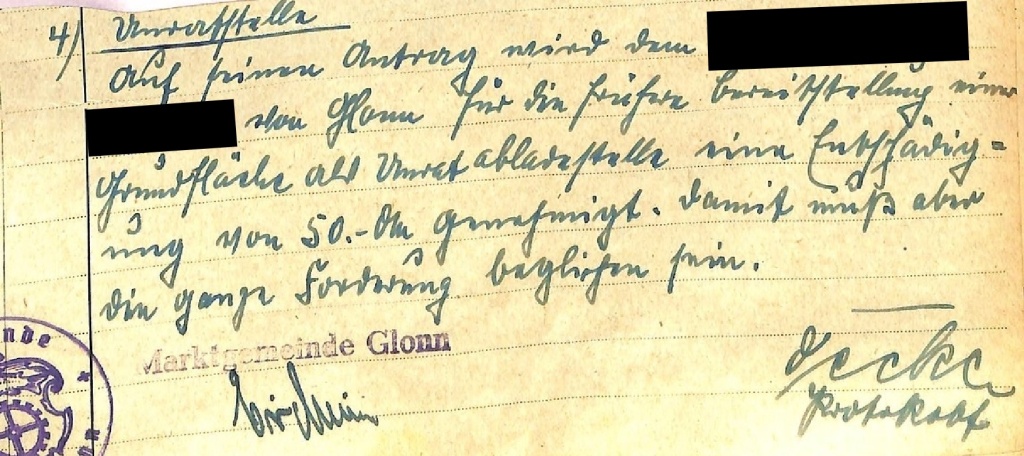 4) Unratstelle
Auf seinen Antrag wird dem
von Glonn für die frühere Bereitstellung einer
Grundfläche als Unratabladestelle eine Entschädig=
ung von 50.- DM genehmigt. Damit muß aber
die ganze Forderung beglichen sein.
Marktgemeinde Glonn
Protokollf.